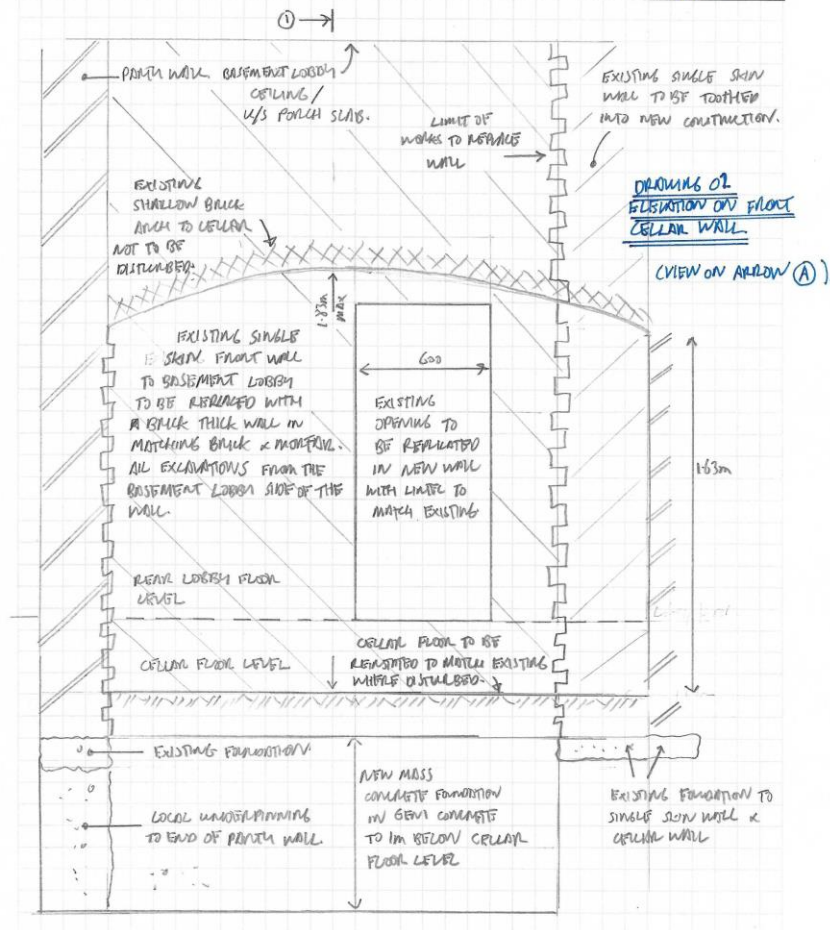 ①
PARTY WALL.
BASEMENT LOBBY
CEILING /
U/S PORCH SLAB.
LIMIT OF
WORKS TO REPLACE
WALL
EXISTING SINGLE SKIN
WALL TO BE TOOTHED
INTO NEW CONSTRUCTION.
DRAWING 02
ELEVATION ON FRONT
CELLAR WALL
(VIEW ON ARROW Ⓐ)
EXISTING
SHALLOW BRICK
ARCH TO CELLAR
NOT TO BE
DISTURBED.
1.83m
max
EXISTING SINGLE
SKIN FRONT WALL
TO BASEMENT LOBBY
TO BE REPLACED WITH
A BRICK THICK WALL IN
MATCHING BRICK & MORTAR.
ALL EXCAVATIONS FROM THE
BASEMENT LOBBY SIDE OF THE
WALL.
600
EXISTING
OPENING TO
BE REPLICATED
IN NEW WALL
WITH LINTEL TO
MATCH EXISTING
1.63m
REAR LOBBY FLOOR
LEVEL
CELLAR FLOOR LEVEL
CELLAR FLOOR TO BE
REINSTATED TO MATCH EXISTING
WHERE DISTURBED.
EXISTING FOUNDATION.
LOCAL UNDERPINNING
TO END OF PARTY WALL.
NEW MASS
CONCRETE FOUNDATION
IN GEN1 CONCRETE
TO 1m BELOW CELLAR
FLOOR LEVEL
EXISTING FOUNDATION TO
SINGLE SKIN WALL &
CELLAR WALL